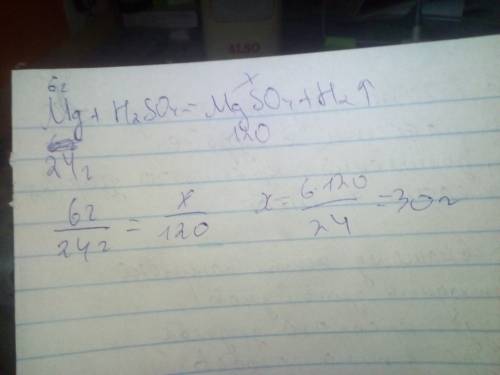 6г x
Mg + H₂SO₄ = MgSO₄ + H₂↑
24г 120
6г/24г = x/120 x = 6·120/24 = 30г